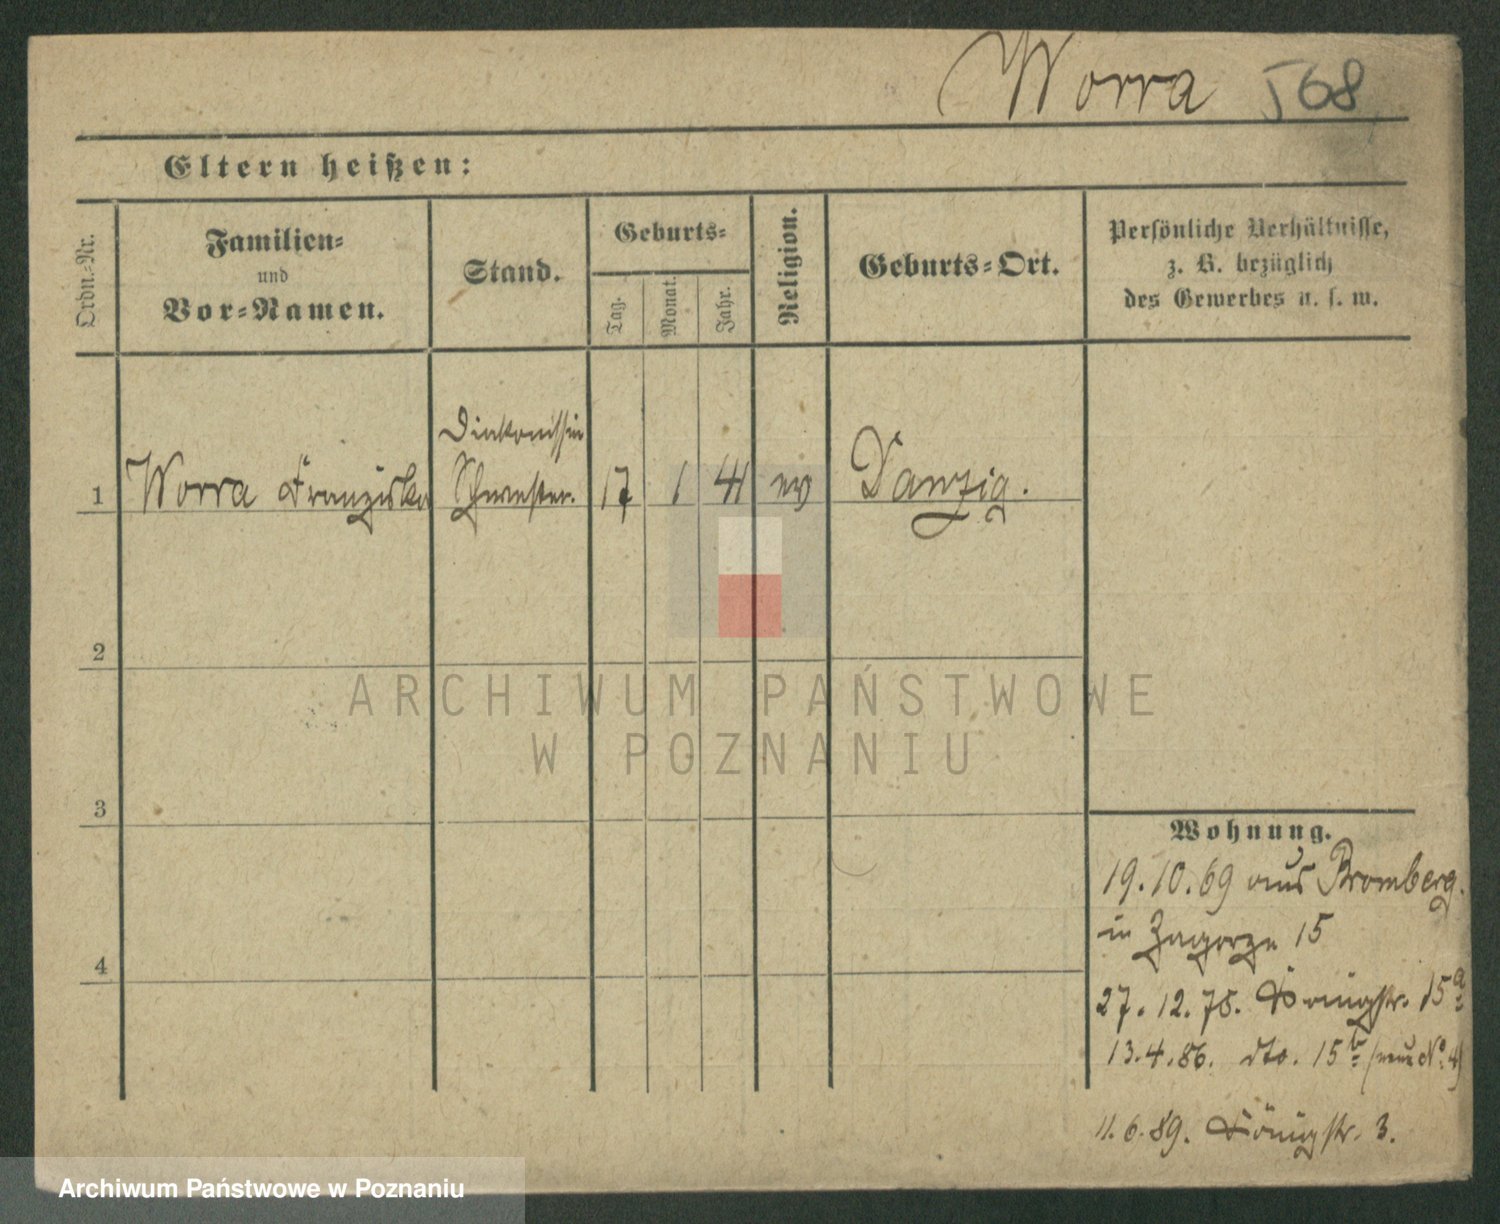 Worra 568
Eltern heißen:
Ordn.-Nr.
Familien-
und
Vor-Namen.
Stand.
Geburts-
Tag.
Monat.
Jahr.
Religion.
Geburts-Ort.
Persönliche Verhältnisse,
z. B. bezüglich
des Gewerbes u. s. w.
Diakonissin
1 Worra Franziska Schwester. 17 1 41 ev Danzig.
2
ARCHIWUM PAŃSTWOWE
W POZNANIU
3
Wohnung.
19.10.69 aus Bromberg.
in Zagorze 15
4
27.12.78. Königstr. 15a
13.4.86. dto. 15b (neue No. 4)
11.6.89. Königstr. 3.
Archiwum Państwowe w Poznaniu